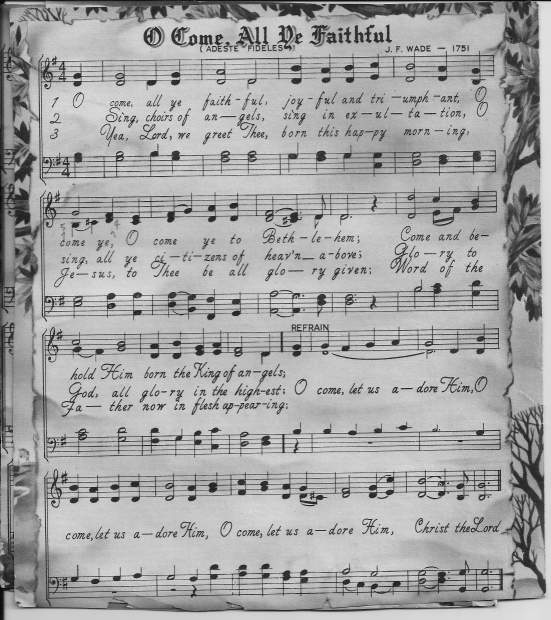 O Come, All Ye Faithful
(ADESTE FIDELES)
J. F. WADE — 1751
1 O come, all ye faith-ful, joy-ful and tri-umph-ant, O
2 Sing, choirs of an-gels, sing in ex-ul-ta-tion, O
3 Yea, Lord, we greet Thee, born this hap-py morn-ing,
come ye, O come ye to Beth-le-hem; Come and be-
sing, all ye ci-ti-zens of heav'n a-bove; Glo-ry to
Je-sus, to Thee be all glo-ry given; Word of the
REFRAIN
hold Him born the King of an-gels;
God, all glo-ry in the high-est; O come, let us a-dore Him, O
Fa-ther now in flesh ap-pear-ing;
come, let us a-dore Him, O come, let us a-dore Him, Christ the Lord